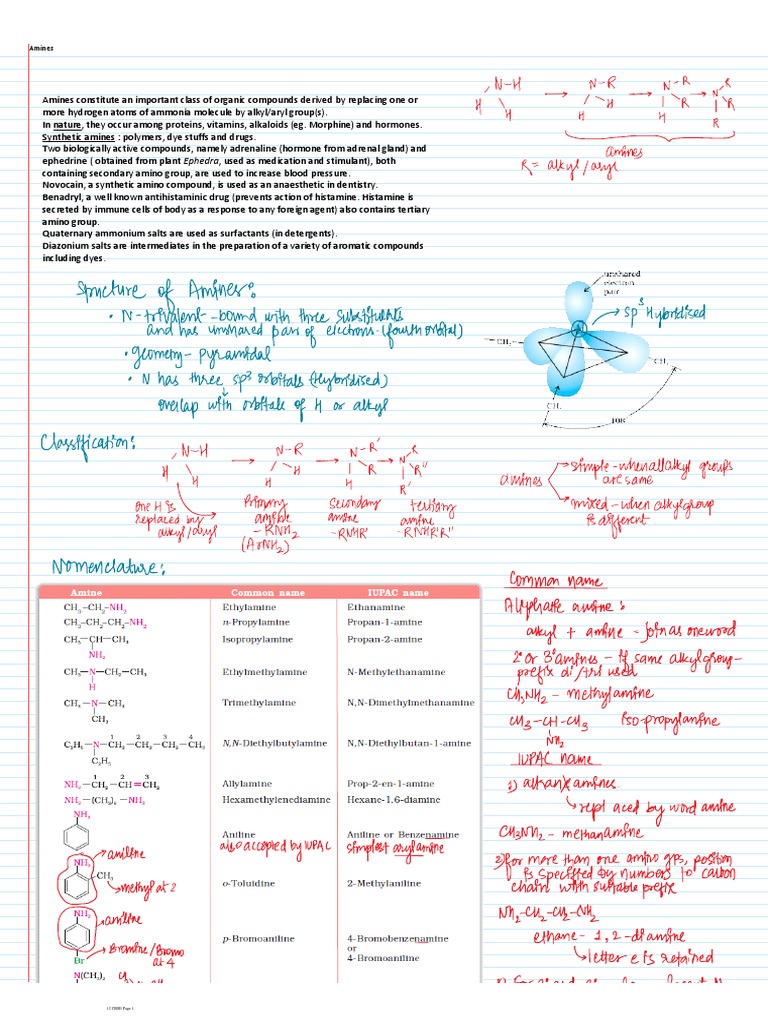 Amines
Amines constitute an important class of organic compounds derived by replacing one or
more hydrogen atoms of ammonia molecule by alkyl/aryl group(s).
In nature, they occur among proteins, vitamins, alkaloids (eg. Morphine) and hormones.
Synthetic amines : polymers, dye stuffs and drugs.
Two biologically active compounds, namely adrenaline (hormone from adrenal gland) and
ephedrine ( obtained from plant Ephedra, used as medication and stimulant), both
containing secondary amino group, are used to increase blood pressure.
Novocain, a synthetic amino compound, is used as an anaesthetic in dentistry.
Benadryl, a well known antihistaminic drug (prevents action of histamine. Histamine is
secreted by immune cells of body as a response to any foreign agent) also contains tertiary
amino group.
Quaternary ammonium salts are used as surfactants (in detergents).
Diazonium salts are intermediates in the preparation of a variety of aromatic compounds
including dyes.
N-H H H → N-R H H → N-R H R → N R R R
amines
R = alkyl/aryl
Structure of Amines:
• N-trivalent-bound with three substituents
and has unshared pair of electrons (fourth orbital)
• geometry - pyramidal
• N has three sp3 orbitals (Hybridised)
overlap with orbitals of H or alkyl
unshared
electron
pair
sp3 Hybridised
CH3
CH3
CH3
108°
Classification:
N-H H H → N-R H H → N-R' H R → N R R'' R'
one H is
replaced by
alkyl/aryl
Primary
amine
- RNH2
(ArNH2)
Secondary
amine
- RNHR'
tertiary
amine
- RNR'R''
amines
simple - when all alkyl groups
are same
mixed - when alkyl group
is different
Nomenclature:
Amine Common name IUPAC name
CH3–CH2–NH2 Ethylamine Ethanamine
CH3–CH2–CH2–NH2 n-Propylamine Propan-1-amine
CH3–CH–CH3 Isopropylamine Propan-2-amine
NH2
CH3–N–CH2–CH3 Ethylmethylamine N-Methylethanamine
H
CH3–N–CH3 Trimethylamine N,N-Dimethylmethanamine
CH3
1 2 3 4
C2H5–N–CH2–CH2–CH2–CH3 N,N-Diethylbutylamine N,N-Diethylbutan-1-amine
C2H5
1 2 3
NH2–CH2–CH=CH2 Allylamine Prop-2-en-1-amine
NH2–(CH2)6–NH2 Hexamethylenediamine Hexane-1,6-diamine
NH2
Aniline Aniline or Benzenamine
also accepted by IUPAC simplest arylamine
NH2 aniline
CH3
methyl at 2
o-Toluidine 2-Methylaniline
NH2 aniline
Bromine/Bromo
at 4
Br
p-Bromoaniline 4-Bromobenzenamine
or
4-Bromoaniline
N(CH3)2
Common name
Aliphatic amine:
alkyl + amine - join as one word
2° or 3° amines - if same alkyl group-
prefix di/tri used
CH3NH2 - methylamine
CH3-CH-CH3 iso-propylamine
NH2
IUPAC name
1) alkane amines.
replaced by word amine
CH3NH2 - methanamine
2) for more than one amino gps, position
is specified by numbers to carbon
chain with suitable prefix
NH2-CH2-CH2-NH2
ethane-1,2-diamine
letter e is retained